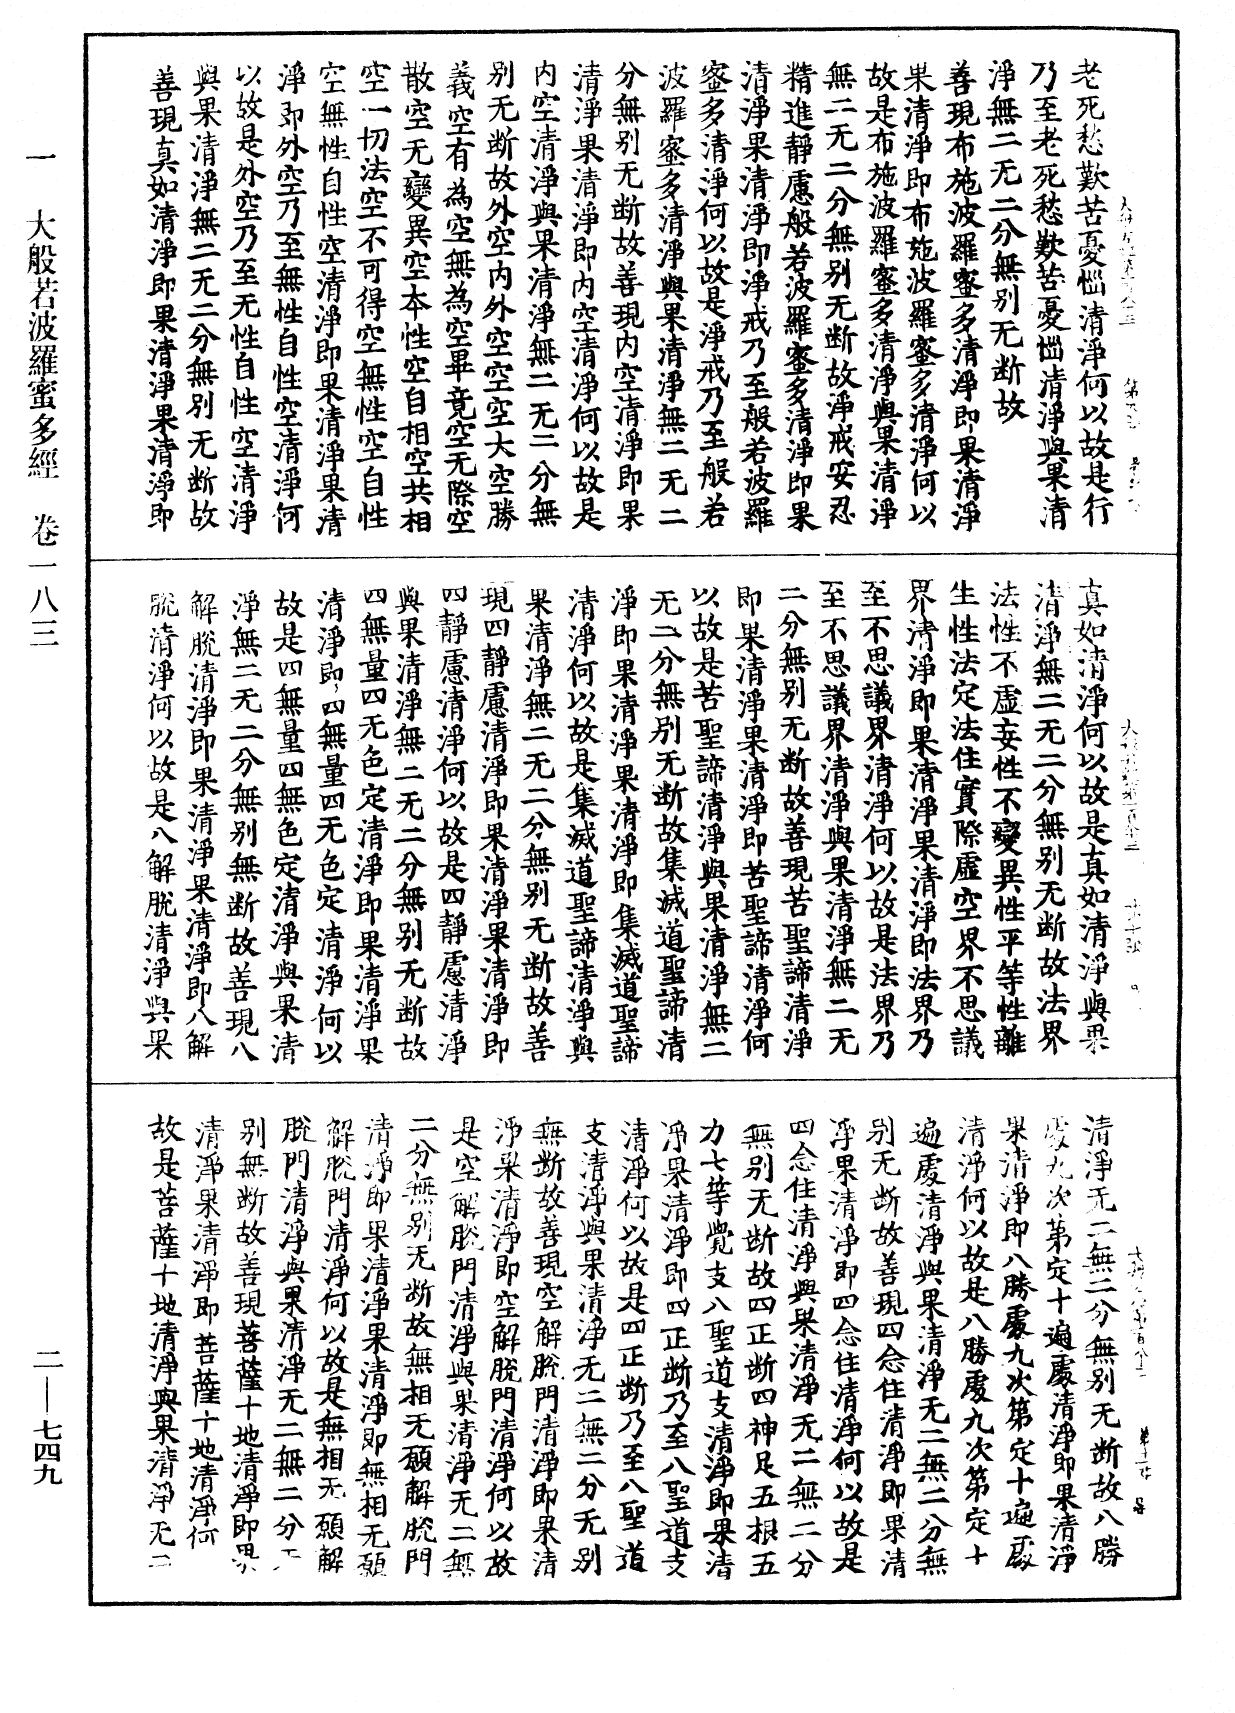 老死愁歎苦憂惱清淨何以故是行
乃至老死愁歎苦憂惱清淨與果清
淨無二无二分無别无断故
善現布施波羅蜜多清淨即果清淨
果清淨即布施波羅蜜多清淨何以
故是布施波羅蜜多清淨與果清淨
無二无二分無别无断故淨戒安忍
精進靜慮般若波羅蜜多清淨即果
清淨果清淨即淨戒乃至般若波羅
蜜多清淨何以故是淨戒乃至般若
波羅蜜多清淨與果清淨無二无二
分無别无断故善現内空清淨即果
清淨果清淨即内空清淨何以故是
内空清淨與果清淨無二无二分無
别无断故外空内外空空空大空勝
義空有為空無為空畢竟空无際空
散空无變異空本性空自相空共相
空一切法空不可得空無性空自性
空無性自性空清淨即果清淨果清
淨即外空乃至無性自性空清淨何
以故是外空乃至无性自性空清淨
與果清淨無二无二分無别无断故
善現真如清淨即果清淨果清淨即
真如清淨何以故是真如清淨與果
清淨無二无二分無别无断故法界
法性不虛妄性不變異性平等性離
生性法定法住實際虛空界不思議
界清淨即果清淨果清淨即法界乃
至不思議界清淨何以故是法界乃
至不思議界清淨與果清淨無二无
二分無别无断故善現苦聖諦清淨
即果清淨果清淨即苦聖諦清淨何
以故是苦聖諦清淨與果清淨無二
无二分無别无断故集滅道聖諦清
淨即果清淨果清淨即集滅道聖諦
清淨何以故是集滅道聖諦清淨與
果清淨無二无二分無别无断故善
現四靜慮清淨即果清淨果清淨即
四靜慮清淨何以故是四靜慮清淨
與果清淨無二无二分無别无断故
四無量四无色定清淨即果清淨果
清淨即四無量四无色定清淨何以
故是四無量四無色定清淨與果清
淨無二无二分無别無断故善現八
解脫清淨即果清淨果清淨即八解
脫清淨何以故是八解脫清淨與果
清淨无二無二分無别无断故八勝
處九次第定十遍處清淨即果清淨
果清淨即八勝處九次第定十遍處
清淨何以故是八勝處九次第定十
遍處清淨與果清淨无二無二分無
别无断故善現四念住清淨即果清
淨果清淨即四念住清淨何以故是
四念住清淨與果清淨无二無二分
無别无断故四正断四神足五根五
力七等覺支八聖道支清淨即果清
淨果清淨即四正断乃至八聖道支
清淨何以故是四正断乃至八聖道
支清淨與果清淨无二無二分无别
無断故善現空解脫門清淨即果清
淨果清淨即空解脫門清淨何以故
是空解脫門清淨與果清淨无二無
二分無别无断故無相无願解脫門
清淨即果清淨果清淨即無相无願
解脫門清淨何以故是無相无願解
脫門清淨與果清淨无二無二分无
别無断故善現菩薩十地清淨即果
清淨果清淨即菩薩十地清淨何
故是菩薩十地清淨與果清淨无二
一 大般若波羅蜜多經 卷一八三
二—七四九